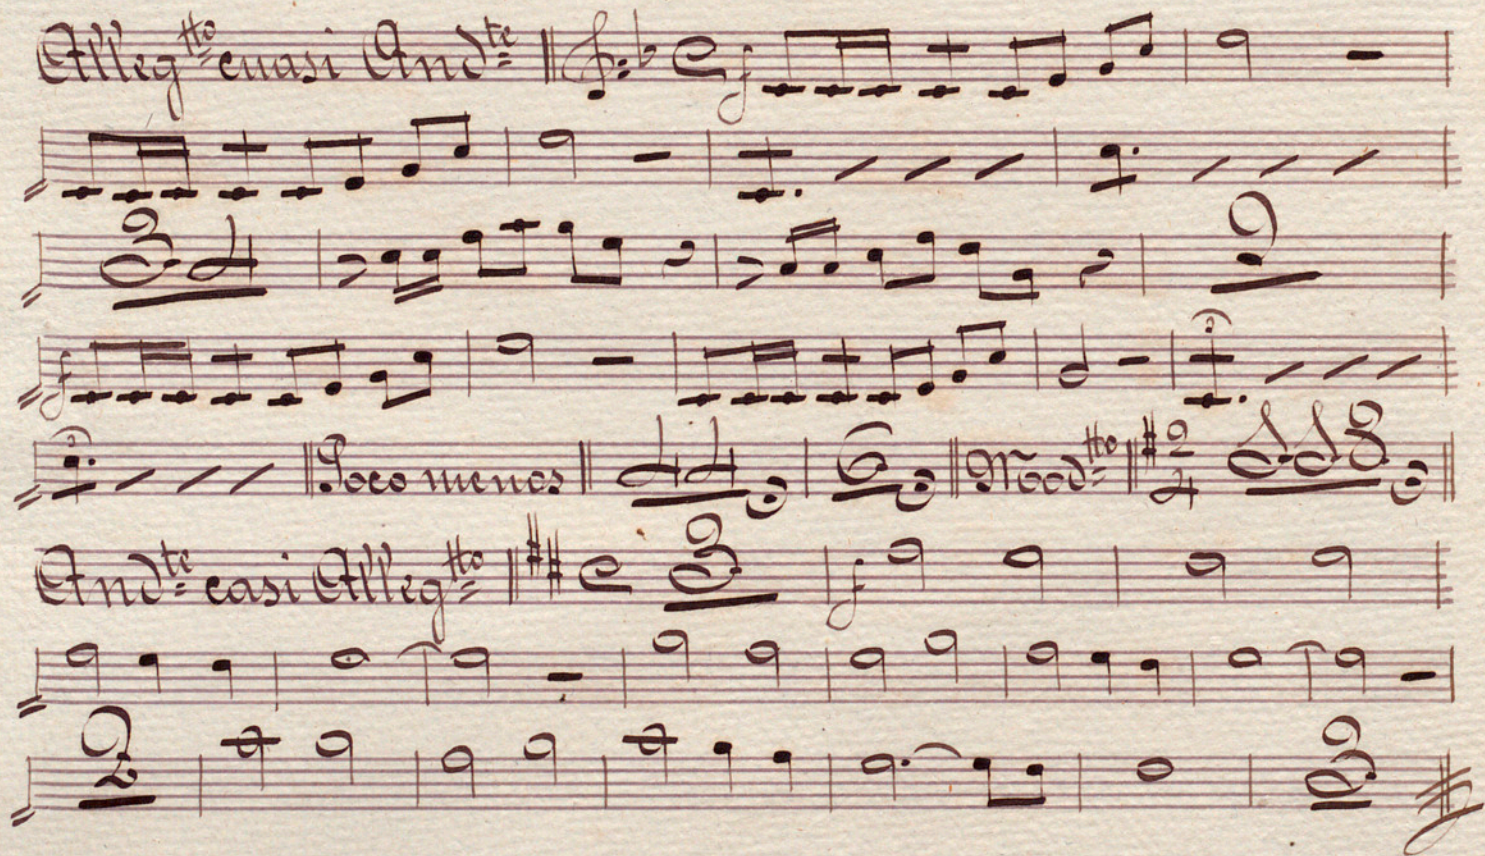 Alleg.tto cuasi And.te
f
34
2
f
3
3 Poco menos 44 6 Mod.tto 2 4
And.te casi Alleg.tto 3 f
2 3